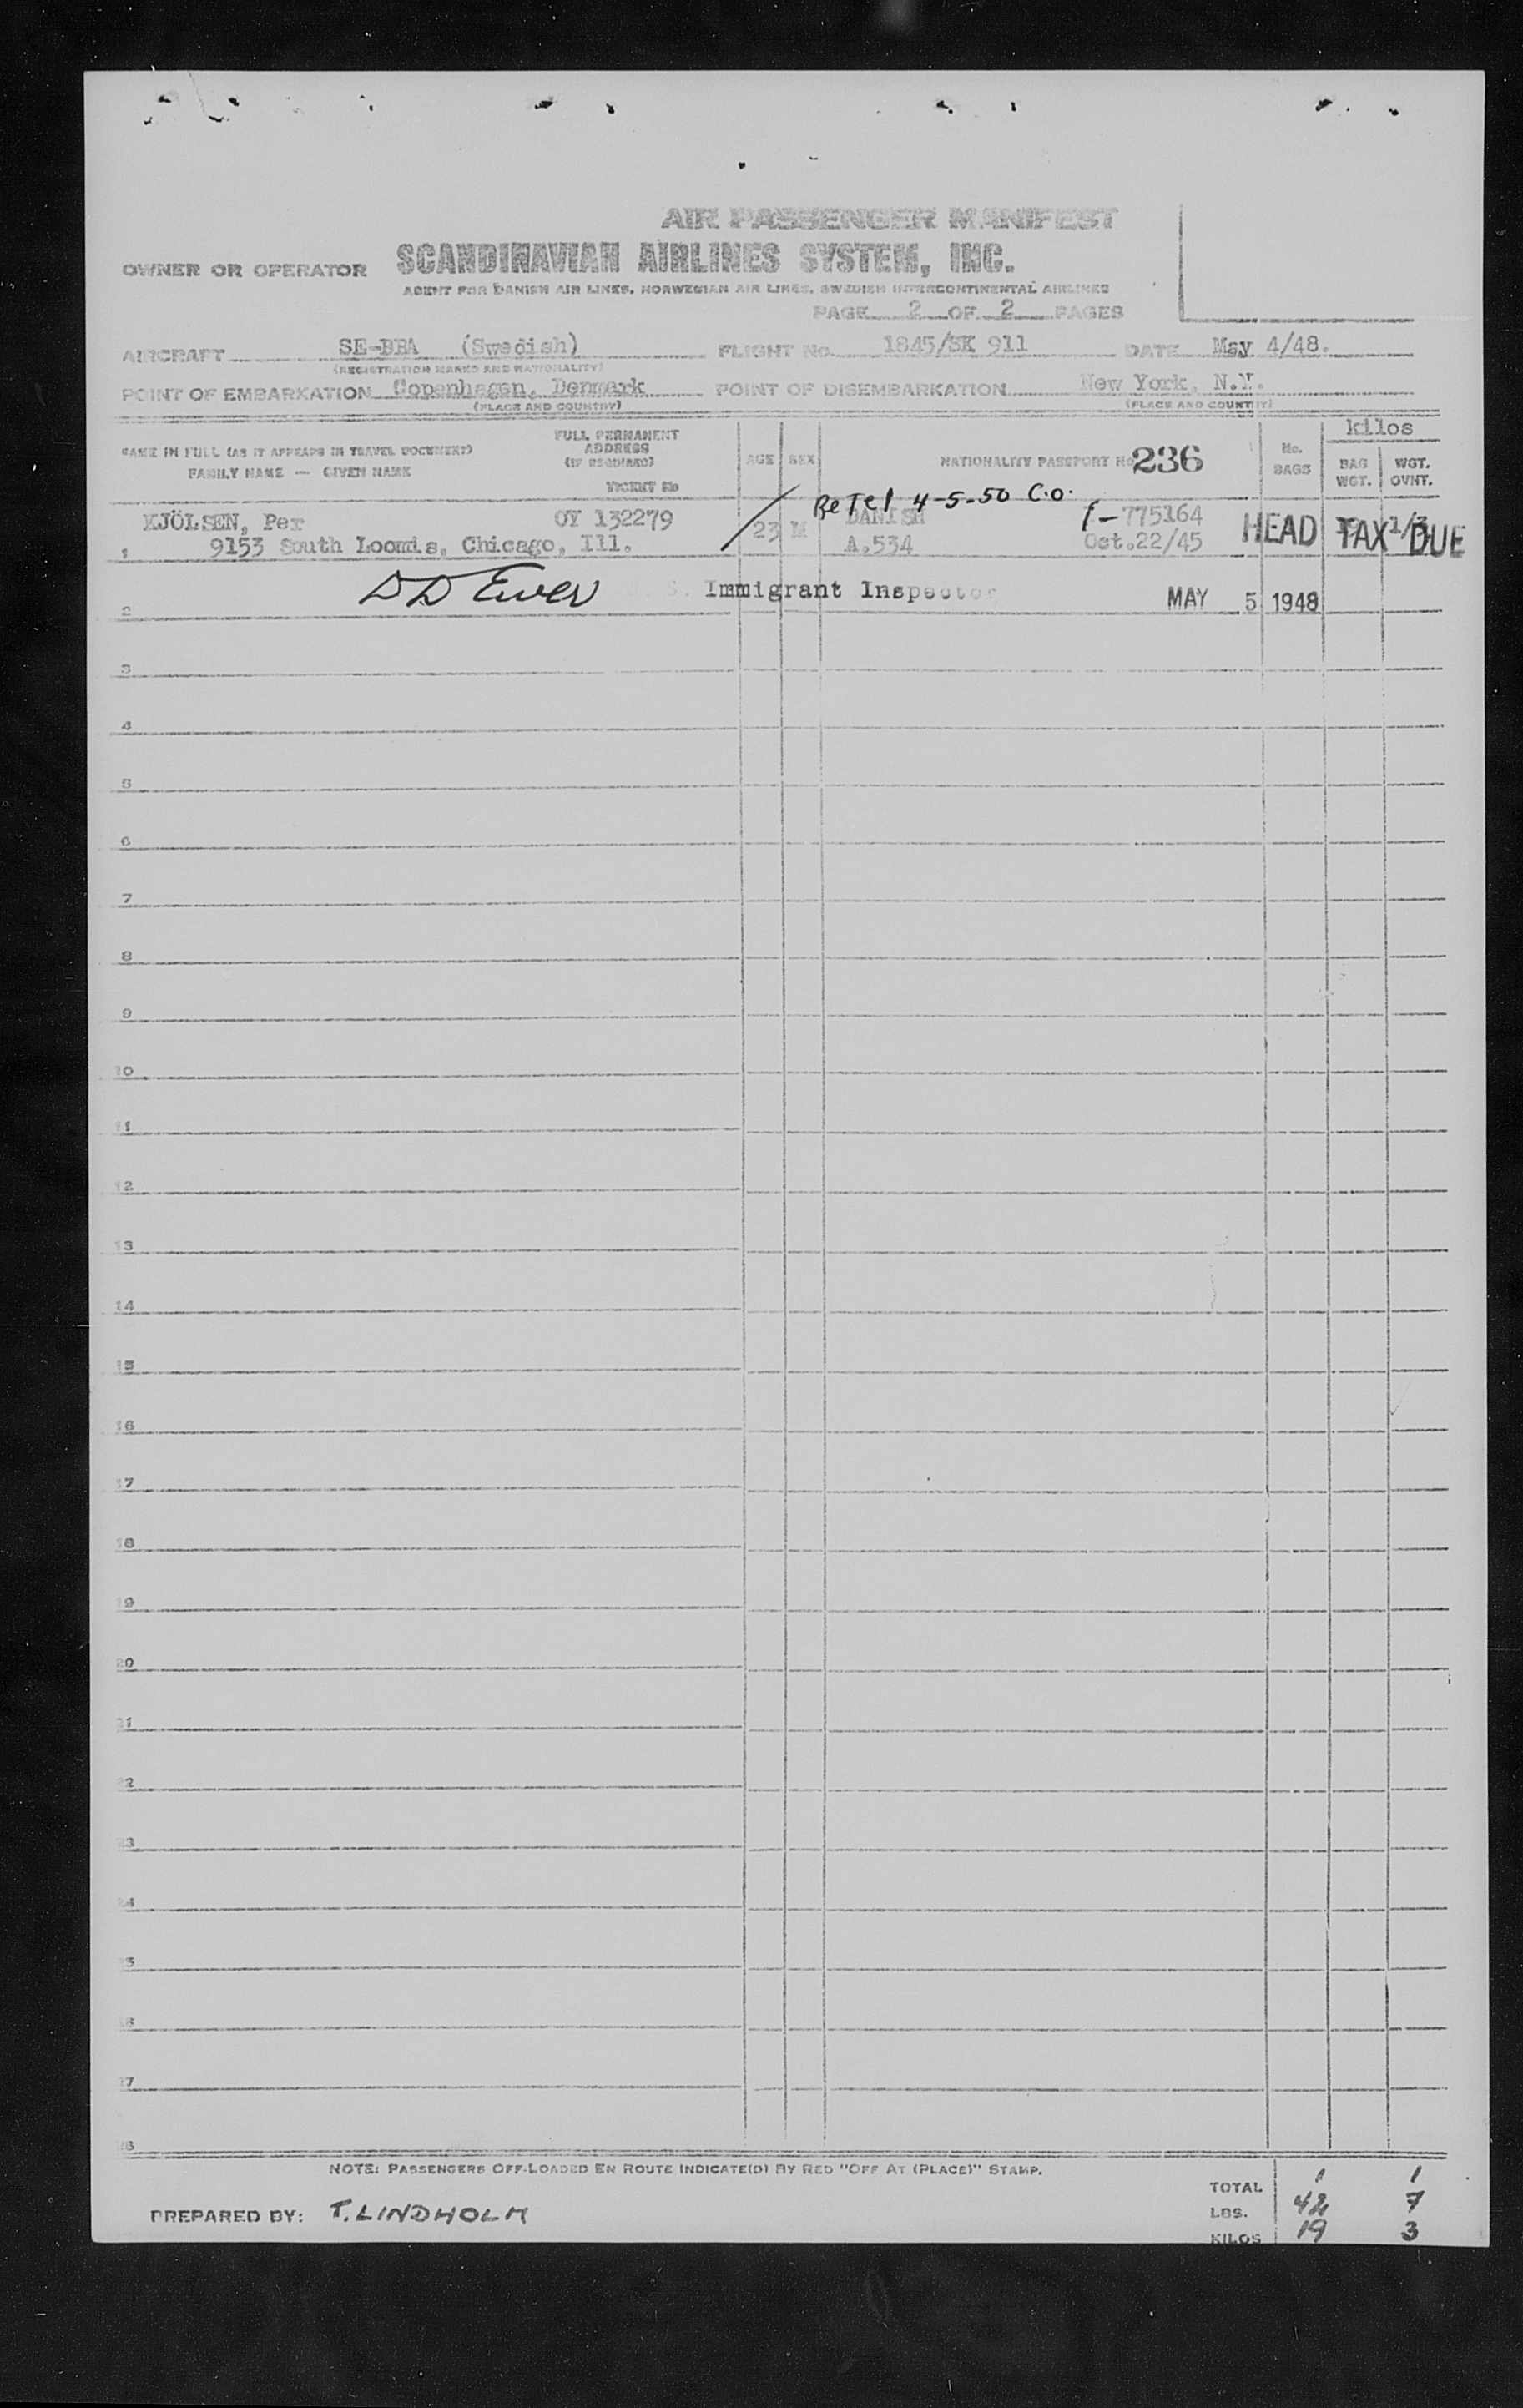 AIR PASSENGER MANIFEST
OWNER OR OPERATOR SCANDINAVIAN AIRLINES SYSTEM, INC.
AGENT FOR DANISH AIR LINES, NORWEGIAN AIR LINES, SWEDISH INTERCONTINENTAL AIRLINES
PAGE 2 OF 2 PAGES
AIRCRAFT SE-BBA (Swedish) FLIGHT No. 1845/SK 911 DATE May 4/48.
(REGISTRATION MARKS AND NATIONALITY)
POINT OF EMBARKATION Copenhagen, Denmark POINT OF DISEMBARKATION New York, N.Y.
(PLACE AND COUNTRY) (PLACE AND COUNTRY)
NAME IN FULL (AS IT APPEARS IN TRAVEL DOCUMENT) FAMILY NAME — GIVEN NAME
FULL PERMANENT ADDRESS (IF REQUIRED)
TICKET No
AGE SEX NATIONALITY PASSPORT No 236 No. BAGS kilos BAG WGT. WGT. OVHT.
ReTel 4-5-50 C.O.
KJÖLSEN, Per OY 132279 23 M DANISH 1-775164
1 9153 South Loomis, Chicago, Ill. A.534 Oct.22/45 HEAD TAX DUE
2 DD Ewer U. S. Immigrant Inspector MAY 5 1948
3
4
5
6
7
8
9
10
11
12
13
14
15
16
17
18
19
20
21
22
23
24
25
26
27
28
NOTE: PASSENGERS OFF-LOADED EN ROUTE INDICATE(D) BY RED "OFF AT (PLACE)" STAMP.
TOTAL 1 1
PREPARED BY: T. LINDHOLM LBS. 42 7
KILOS 19 3